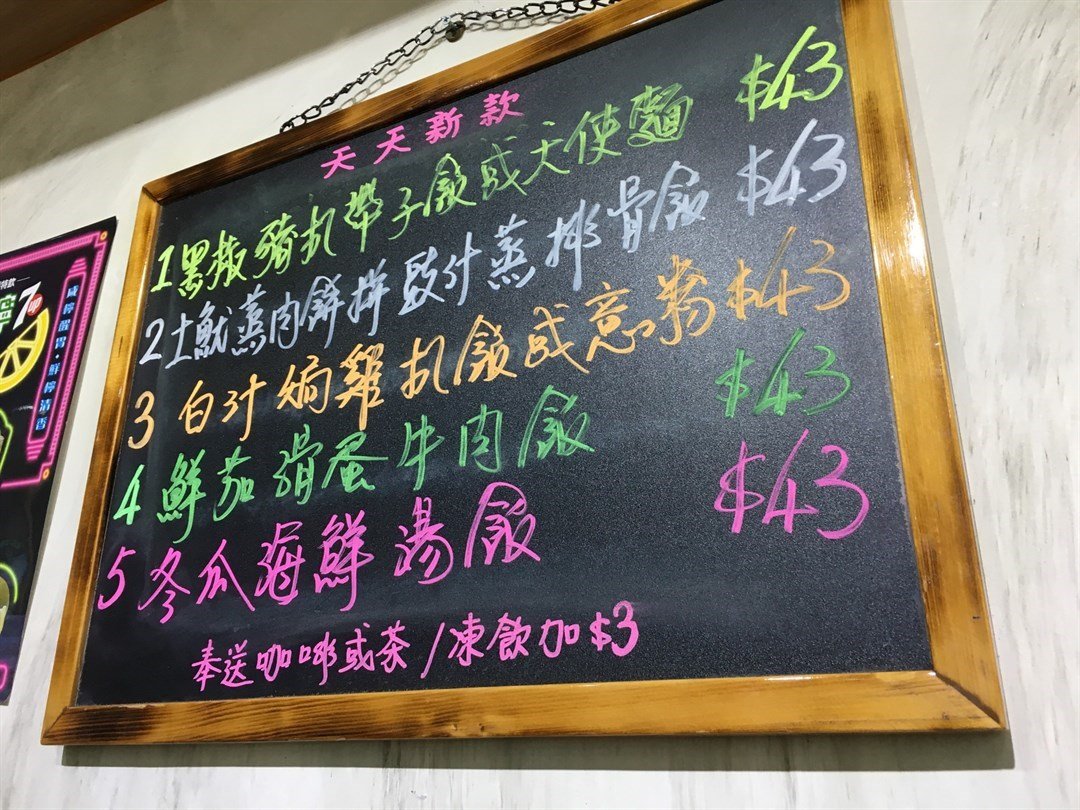 天天新款
1黑椒豬扒帶子飯或天使麵 $43
2土魷蒸肉餅拼豉汁蒸排骨飯 $43
3白汁焗雞扒飯或意粉 $43
4鮮茄滑蛋牛肉飯 $43
5冬瓜海鮮湯飯 $43
奉送咖啡或茶/凍飲加$3
咸檸醒胃·鮮檸清香
7